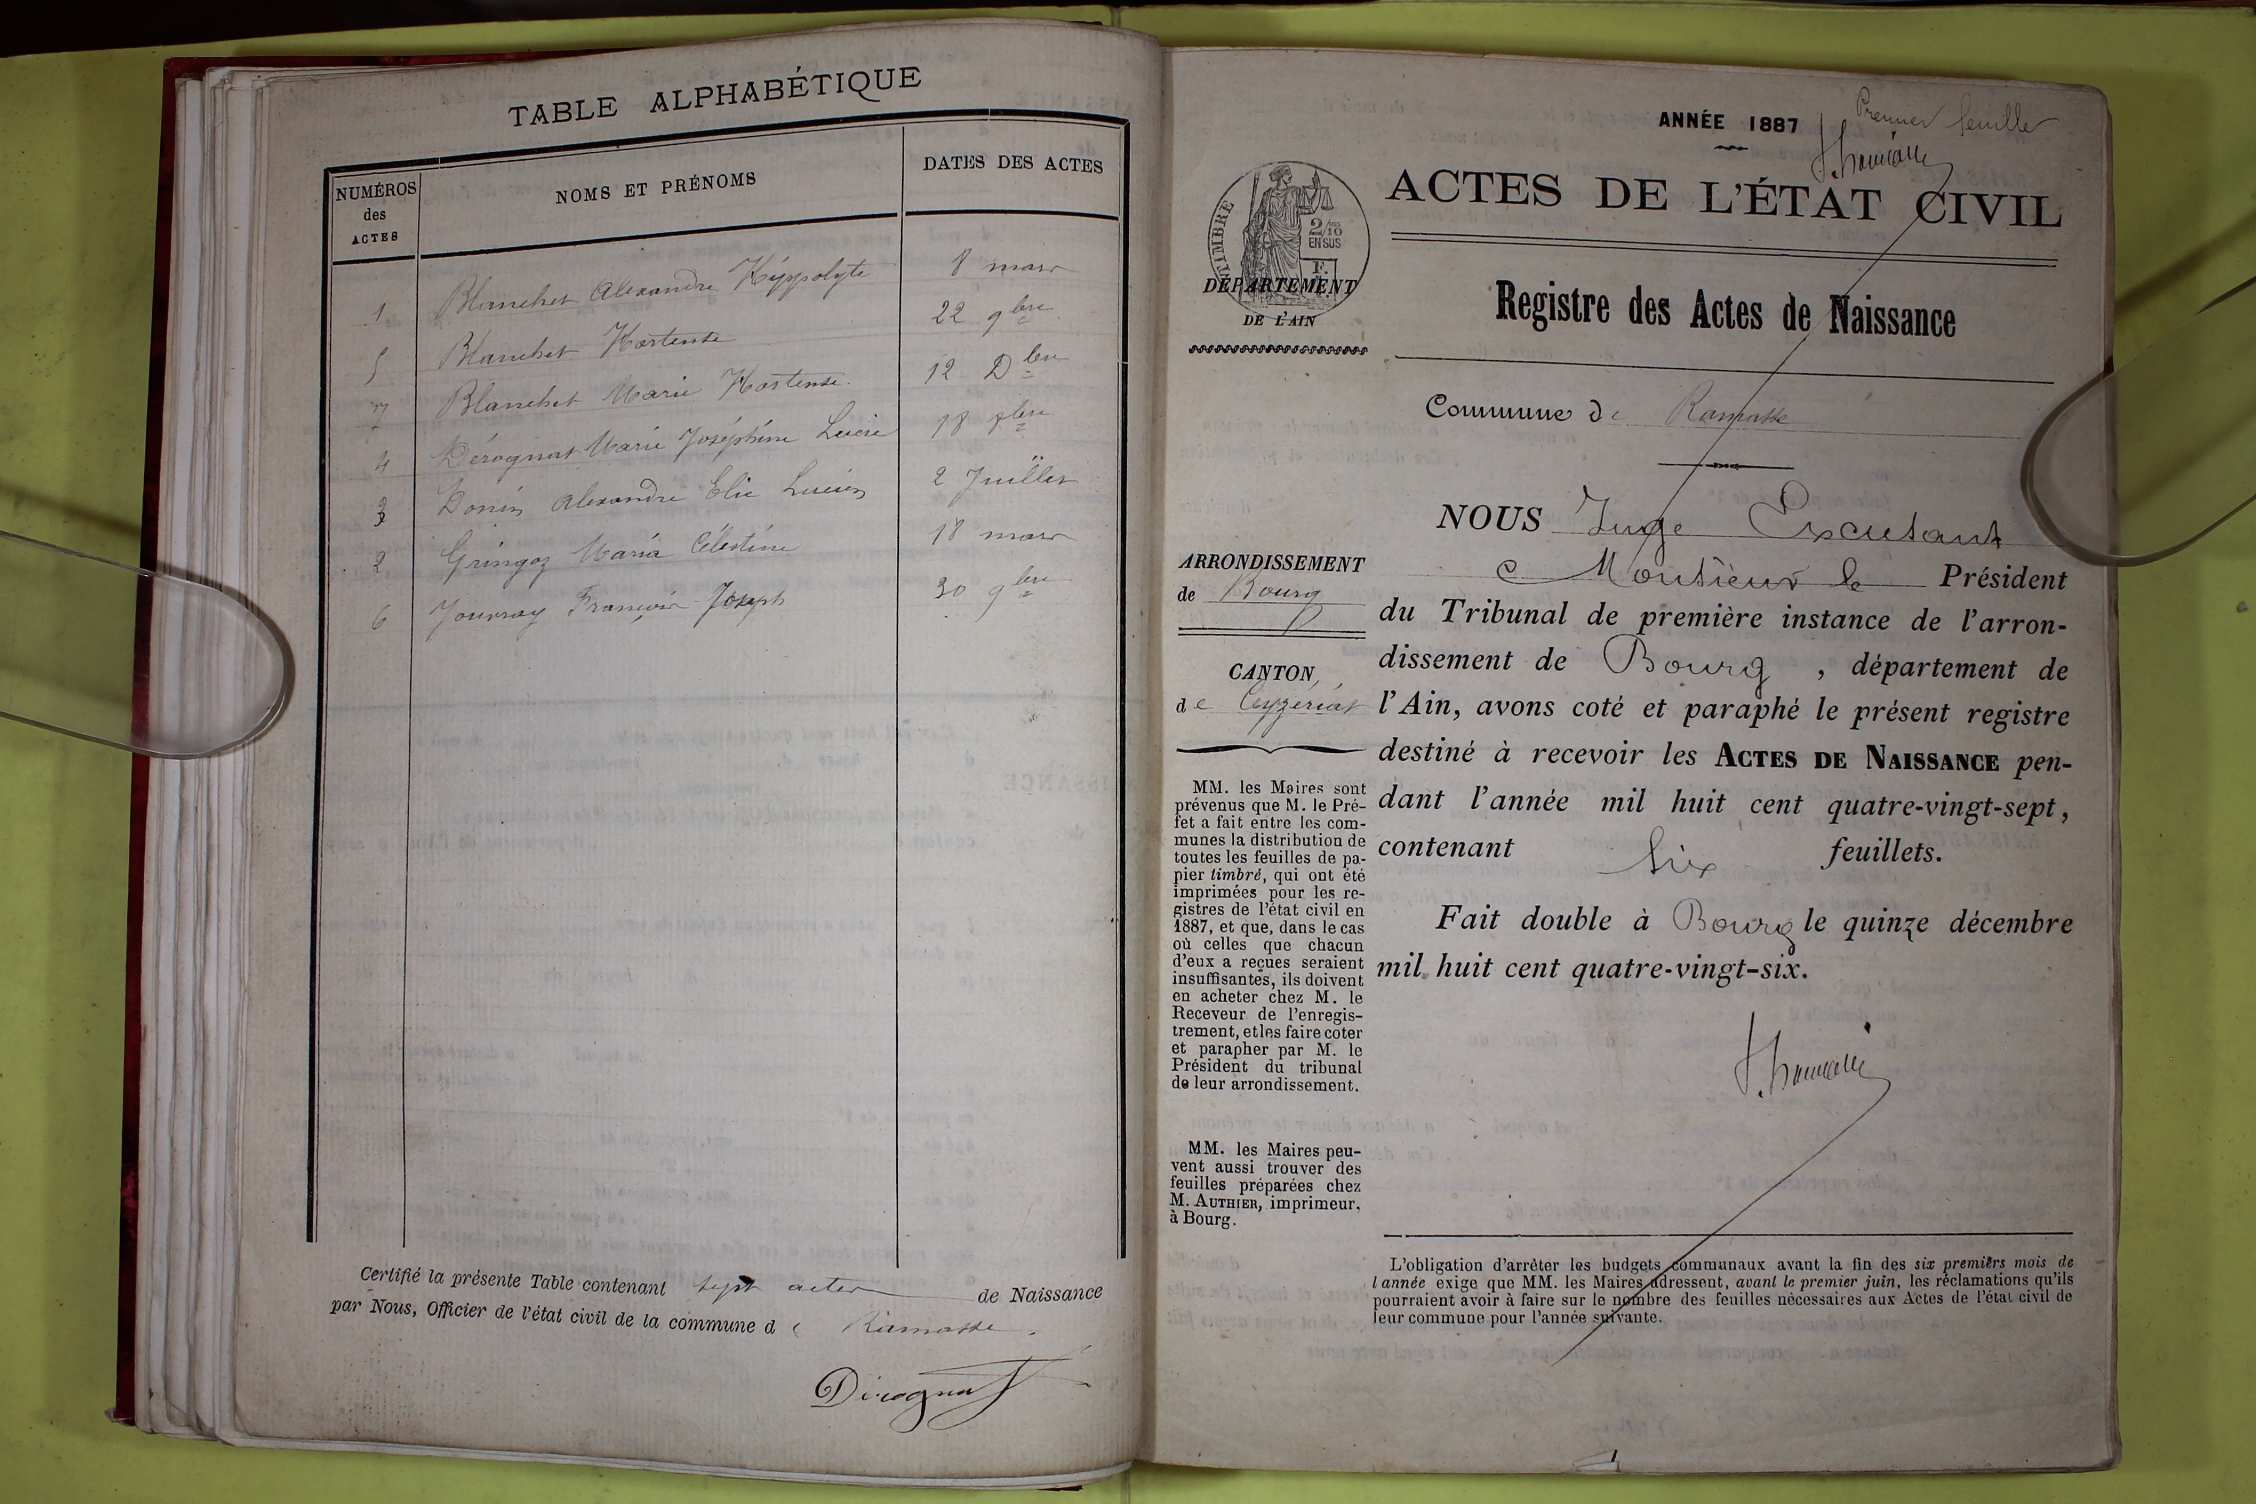 TABLE ALPHABÉTIQUE
NUMÉROS des ACTES
NOMS ET PRÉNOMS
DATES DES ACTES
1 Blanchet Alexandre Hÿppolyte 8 mars
5 Blanchet Hortense 22 9bre
7 Blanchet Marie Hortense 12 Dbre
4 Dérognat Marie Joséphine Lucie 18 8bre
3 Donin Alexandre Elie Lucien 2 Juillet
2 Gringoz Maria Célestine 18 mars
6 Jouvray François Joseph 30 9bre
Certifié la présente Table contenant sept actes de Naissance
par Nous, Officier de l'état civil de la commune d e Ramasse.
Dérognat
Premier feuillet
ANNÉE 1887
ACTES DE L'ÉTAT CIVIL
TIMBRE
2/10
EN SUS
DÉPARTEMENT
DE L'AIN
Registre des Actes de Naissance
Commune de Ramasse
ARRONDISSEMENT
de Bourg
CANTON
de Ceyzériat
MM. les Maires sont
prévenus que M. le Pré-
fet a fait entre les com-
munes la distribution de
toutes les feuilles de pa-
pier timbré, qui ont été
imprimées pour les re-
gistres de l'état civil en
1887, et que, dans le cas
où celles que chacun
d'eux a reçues seraient
insuffisantes, ils doivent
en acheter chez M. le
Receveur de l'enregis-
trement, et les faire coter
et parapher par M. le
Président du tribunal
de leur arrondissement.
MM. les Maires peu-
vent aussi trouver des
feuilles préparées chez
M. AUTHIER, imprimeur,
à Bourg.
NOUS Juge Excusant
Monsieur le Président
du Tribunal de première instance de l'arron-
dissement de Bourg, département de
l'Ain, avons coté et paraphé le présent registre
destiné à recevoir les ACTES DE NAISSANCE pen-
dant l'année mil huit cent quatre-vingt-sept,
contenant Six feuillets.
Fait double à Bourg le quinze décembre
mil huit cent quatre-vingt-six.
L'obligation d'arrêter les budgets communaux avant la fin des six premiers mois de
l'année exige que MM. les Maires adressent, avant le premier juin, les réclamations qu'ils
pourraient avoir à faire sur le nombre des feuilles nécessaires aux Actes de l'état civil de
leur commune pour l'année suivante.